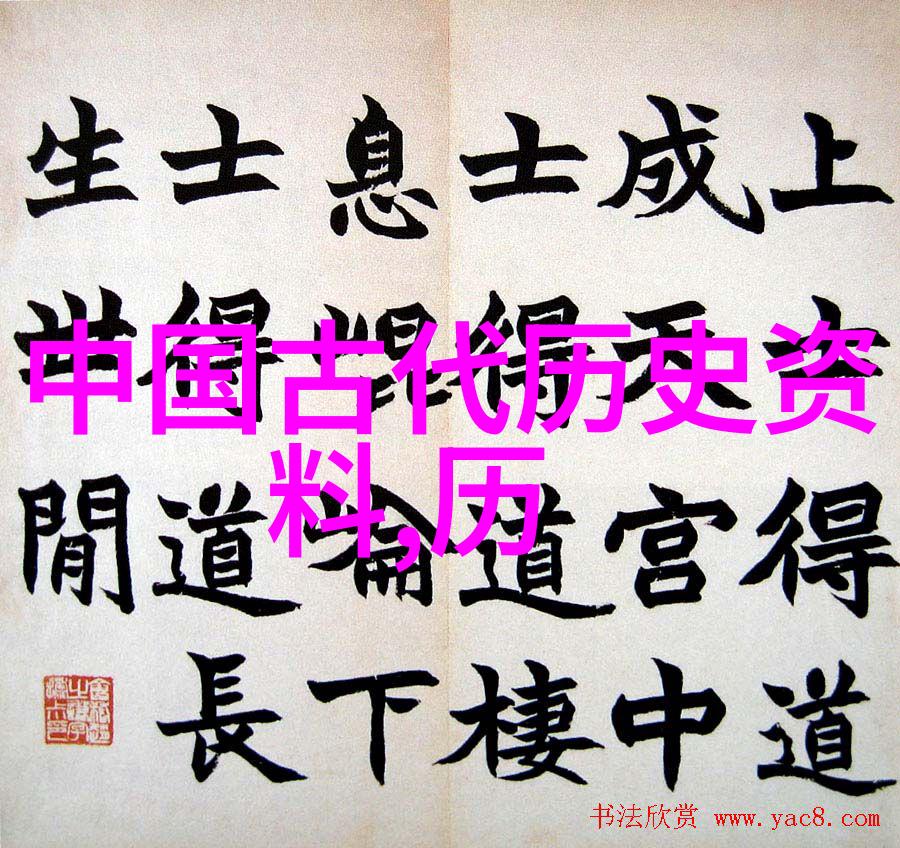 中国古代历史资
料,历
上士得道
成天宫中
士得道棲
息崐崘下
士得道長
生世間
书法欣赏 www.yac8.com